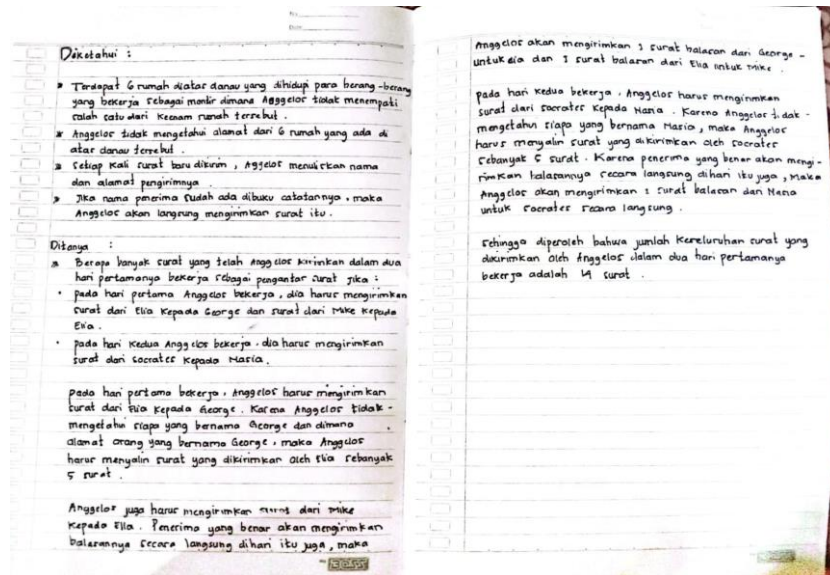 No.
Date
Diketahui :
» Terdapat 6 rumah diatar danau yang dihidupi para berang-berang
yang bekerja sebagai montir dimana Anggelos tidak menempati
salah satu dari keenam rumah tersebut.
» Anggelos tidak mengetahui alamat dari 6 rumah yang ada di
atar danau tersebut.
» Setiap kali surat baru dikirim, Aggelos menuliskan nama
dan alamat pengirimnya
» Jika nama penerima sudah ada dibuku catatannya, maka
Anggelos akan langsung mengirimkan surat itu.
Ditanya :
» Berapa banyak surat yang telah Anggelos kirimkan dalam dua
hari pertamanya bekerja sebagai pengantar surat jika :
· pada hari pertama Anggelos bekerja, dia harus mengirimkan
surat dari Elia kepada George dan surat dari Mike kepada
Elia.
· pada hari kedua Anggelos bekerja. dia harus mengirimkan
surat dari socrates kepada Maria.
pada hari pertama bekerja, Anggelos harus mengirimkan
surat dari Elia kepada George. Karena Anggelos tidak-
mengetahui siapa yang bernama George dan dimana
alamat orang yang bernama George, maka Anggelos
harus menyalin surat yang dikirimkan oleh Elia sebanyak
5 surat.
Anggelos juga harus mengirimkan surat dari Mike
kepada Elia. Penerima yang benar akan mengirimkan
balasannya secara langsung dihari itu juga, maka
Anggelos akan mengirimkan 1 surat balasan dari George-
untuk Elia dan 1 surat balasan dari Elia untuk Mike.
pada hari kedua bekerja, Anggelos harus mengirimkan
surat dari socrates kepada Maria. Karena Anggelos tidak-
mengetahui siapa yang bernama Maria, maka Anggelos
harus menyalin surat yang dikirimkan oleh socrates
sebanyak 5 surat. Karena penerima yang benar akan mengi-
rimkan balasannya secara langsung dihari itu juga, maka
Anggelos akan mengirimkan 1 surat balasan dari Maria
untuk socrates secara langsung.
Sehingga diperoleh bahwa jumlah keseluruhan surat yang
dikirimkan oleh Anggelos dalam dua hari pertamanya
bekerja adalah 14 surat.